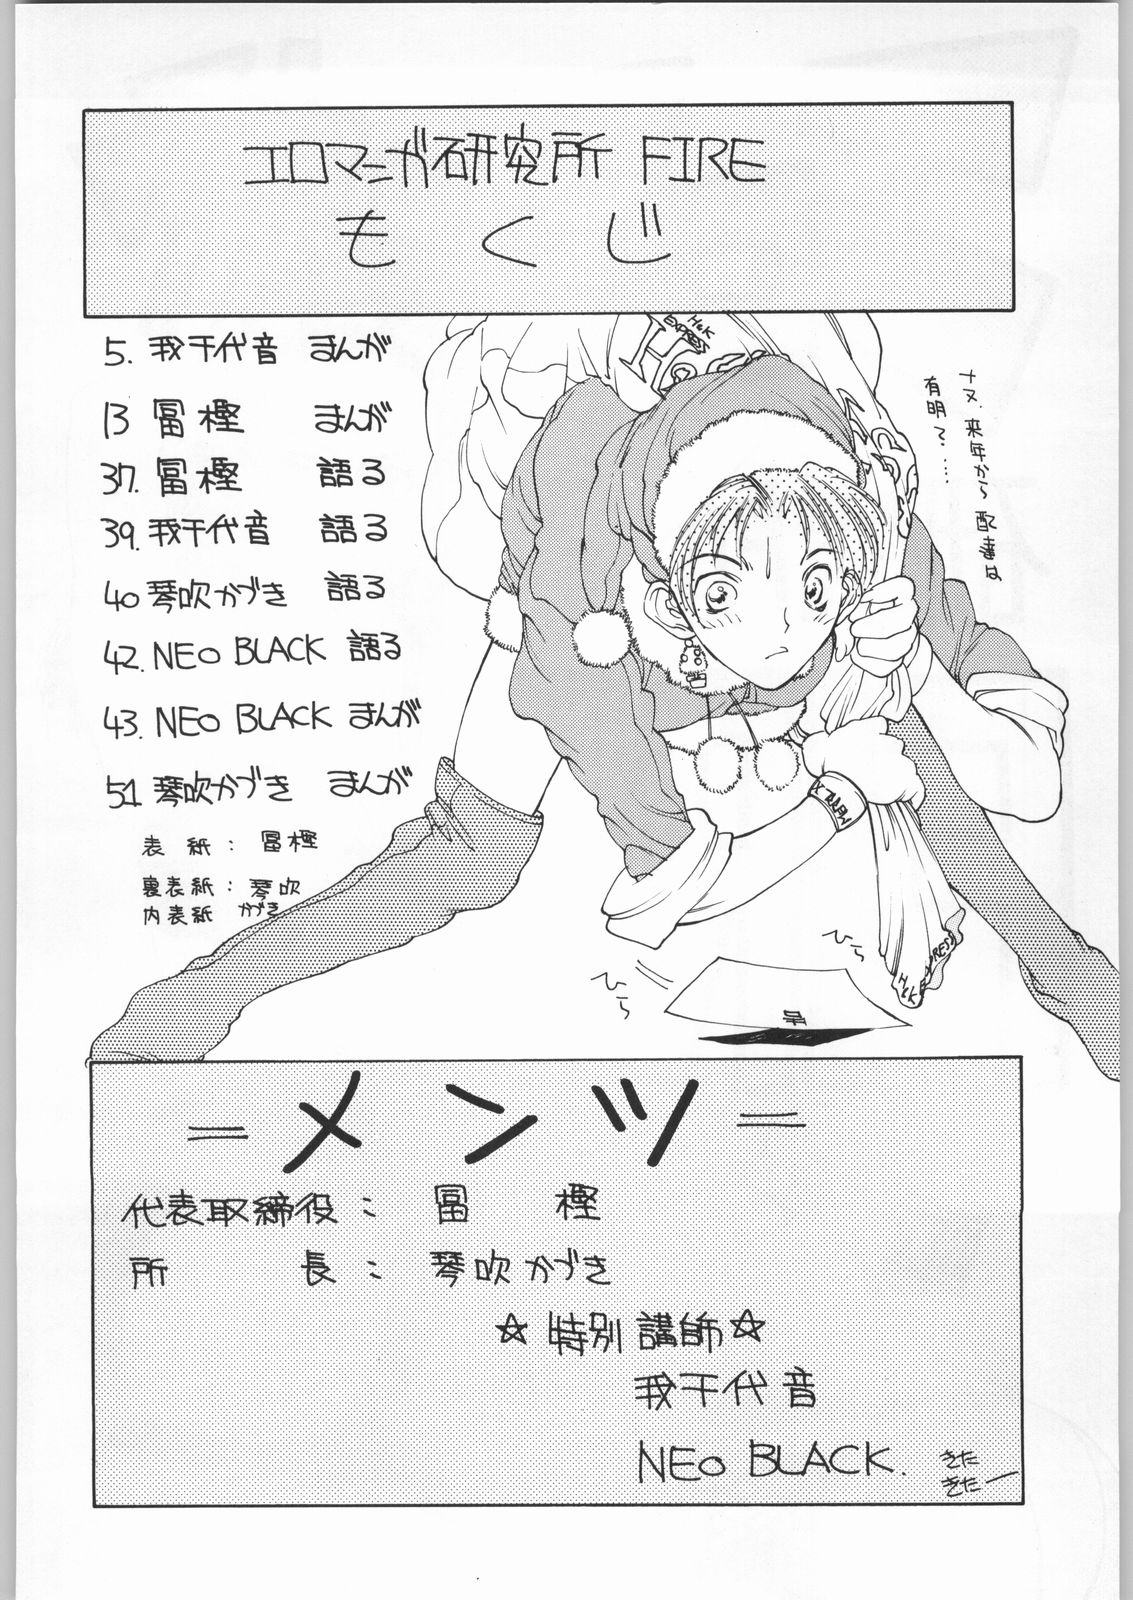 エロマニガ研究所 FIRE
もくじ
5. 我千代音 まんが
13 冨樫 まんが
37. 冨樫 語る
39. 我千代音 語る
40 琴吹かづき 語る
42. NEO BLACK 語る
43. NEO BLACK まんが
51 琴吹かづき まんが
表紙: 冨樫
裏表紙: 琴吹
内表紙 かづき
ナヌ.来年から配達は
有明?......
H&K
EXPRESS
ひら
ひら
H&K
=メンツ=
代表取締役: 冨樫
所長: 琴吹かづき
☆特別講師☆
我千代音
NEO BLACK.
きた
きたー